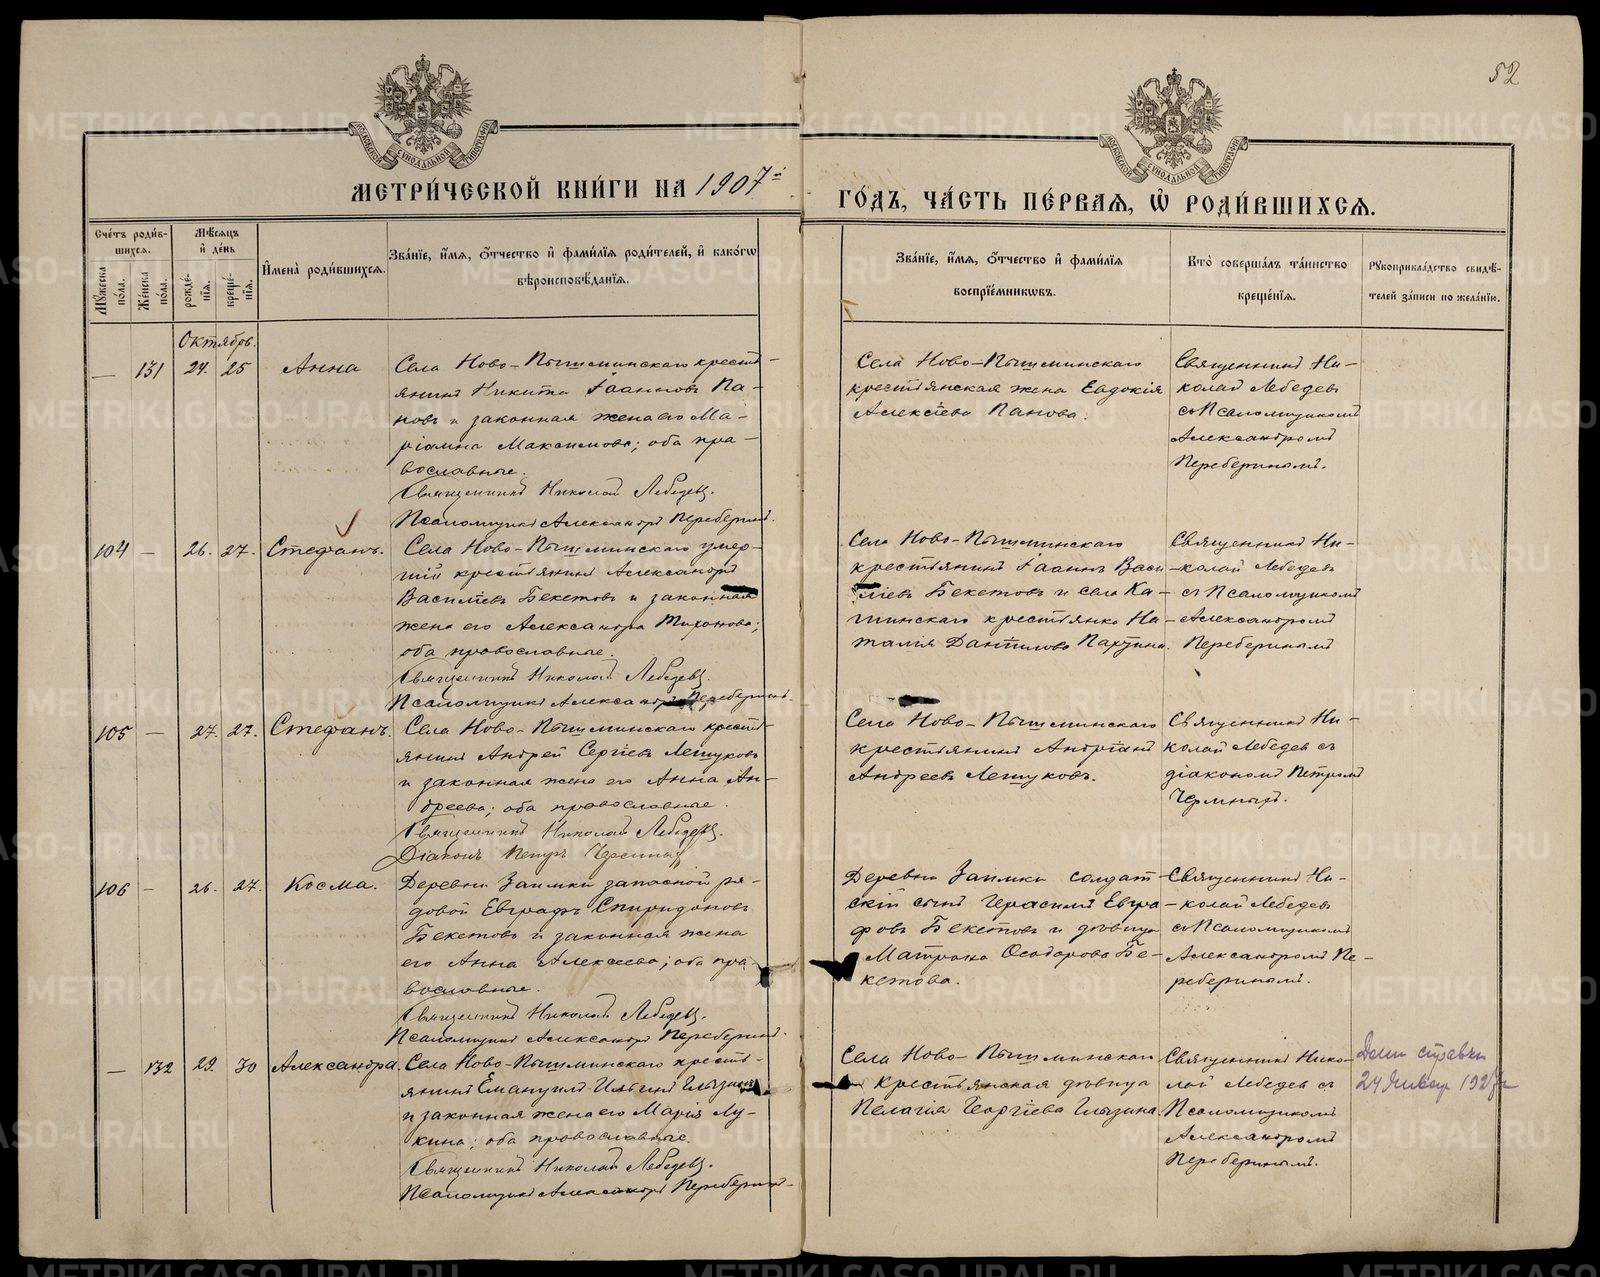 52
МОСКОВСКОЙ СИНОДАЛЬНОЙ ТИПОГРАФІИ
МОСКОВСКОЙ СИНОДАЛЬНОЙ ТИПОГРАФІИ
МЕТРИ́ЧЕСКОЙ КНИ́ГИ НА 1907й
ГО́ДЪ, ЧА́СТЬ ПЕ́РВАЯ, Ѡ҆ РОДИ́ВШИХСЯ.
Сче́тъ роди́в-
шихся.
Мꙋжеска по́ла.
Же́нска по́ла.
Мѣ́сяцъ
и҆ де́нь
рожде́-
нїя.
креще́-
нїя.
И҆мена̀ роди́вшихся.
Зва́нїе, и҆́мя, ѻ҆́тчество и҆ фами́лїя роди́телей, и҆ како́гѡ
вѣроисповѣ́данїя.
Зва́нїе, и҆́мя, ѻ҆́тчество и҆ фами́лїя
воспрїе́мникѡвъ.
Кто̀ соверша́лъ та́инство
креще́нїя.
Рꙋкоприкла́дство свидѣ́-
телей за́писи по жела́нїю.
Октябрь.
— 131 24. 25 Анна
Села Ново-Пышминскаго кресть-
янинъ Никита Іоанновъ Па-
новъ и законная жена его Ма-
ріамна Максимова; оба пра-
вославные.
Священникъ Николай Лебедевъ.
Псаломщикъ Александръ Переберинъ.
Села Ново-Пышминскаго
крестьянская жена Евдокія
Алексіева Панова.
Священникъ Ни-
колай Лебедевъ
съ Псаломщикомъ
Александромъ
Переберинымъ.
104 — 26. 27. Стефанъ.
Села Ново-Пышминскаго умер-
шій крестьянинъ Александръ
Василіевъ Бекетовъ и законная
жена его Александра Тихонова;
оба православные.
Священникъ Николай Лебедевъ.
Псаломщикъ Александръ Переберинъ.
Села Ново-Пышминскаго
крестьянинъ Іоаннъ Васи-
ліевъ Бекетовъ и села Ка-
шинскаго крестьянка На-
талія Даніилова
Священникъ Ни-
колай Лебедевъ
съ Псаломщикомъ
Александромъ
Переберинымъ
105 — 27. 27. Стефанъ.
Села Ново-Пышминскаго кресть-
янинъ Андрей Сергіевъ Лешуковъ
и законная жена его Анна Ан-
дреева; оба православные.
Священникъ Николай Лебедевъ.
Діаконъ Петръ Черемныхъ
Села Ново-Пышминскаго
крестьянинъ Андріанъ
Андреевъ Лешуковъ.
Священникъ Ни-
колай Лебедевъ съ
діакономъ Петромъ
106 — 26. 27. Косма.
Деревни Заимки запасной ря-
довой Евграфъ Спиридоновъ
Бекетовъ и законная жена
его Анна Алексеева; оба пра-
вославные.
Священникъ Николай Лебедевъ.
Псаломщикъ Александръ Переберинъ.
Деревни Заимки солдат-
скій сынъ Герасимъ Евгра-
фовъ Бекетовъ и дѣвица
Матрона Ѳеодорова Бе-
кетова.
Священникъ Ни-
колай Лебедевъ
съ Псаломщикомъ
Александромъ Пе-
реберинымъ.
— 132 29. 30 Александра.
Села Ново-Пышминскаго кресть-
янинъ Емануилъ Ильинъ Глызинъ
и законная жена его Марія Лу-
кина; оба православные.
Священникъ Николай Лебедевъ.
Псаломщикъ Александръ Переберинъ
Села Ново-Пышминскаго
крестьянская дѣвица
Пелагія Георгіева Глызина
Священникъ Нико-
лай Лебедевъ съ
Псаломщикомъ
Александромъ
Переберинымъ.
справки
24 Январ 1927г
METRIKI.GASO-URAL.RU